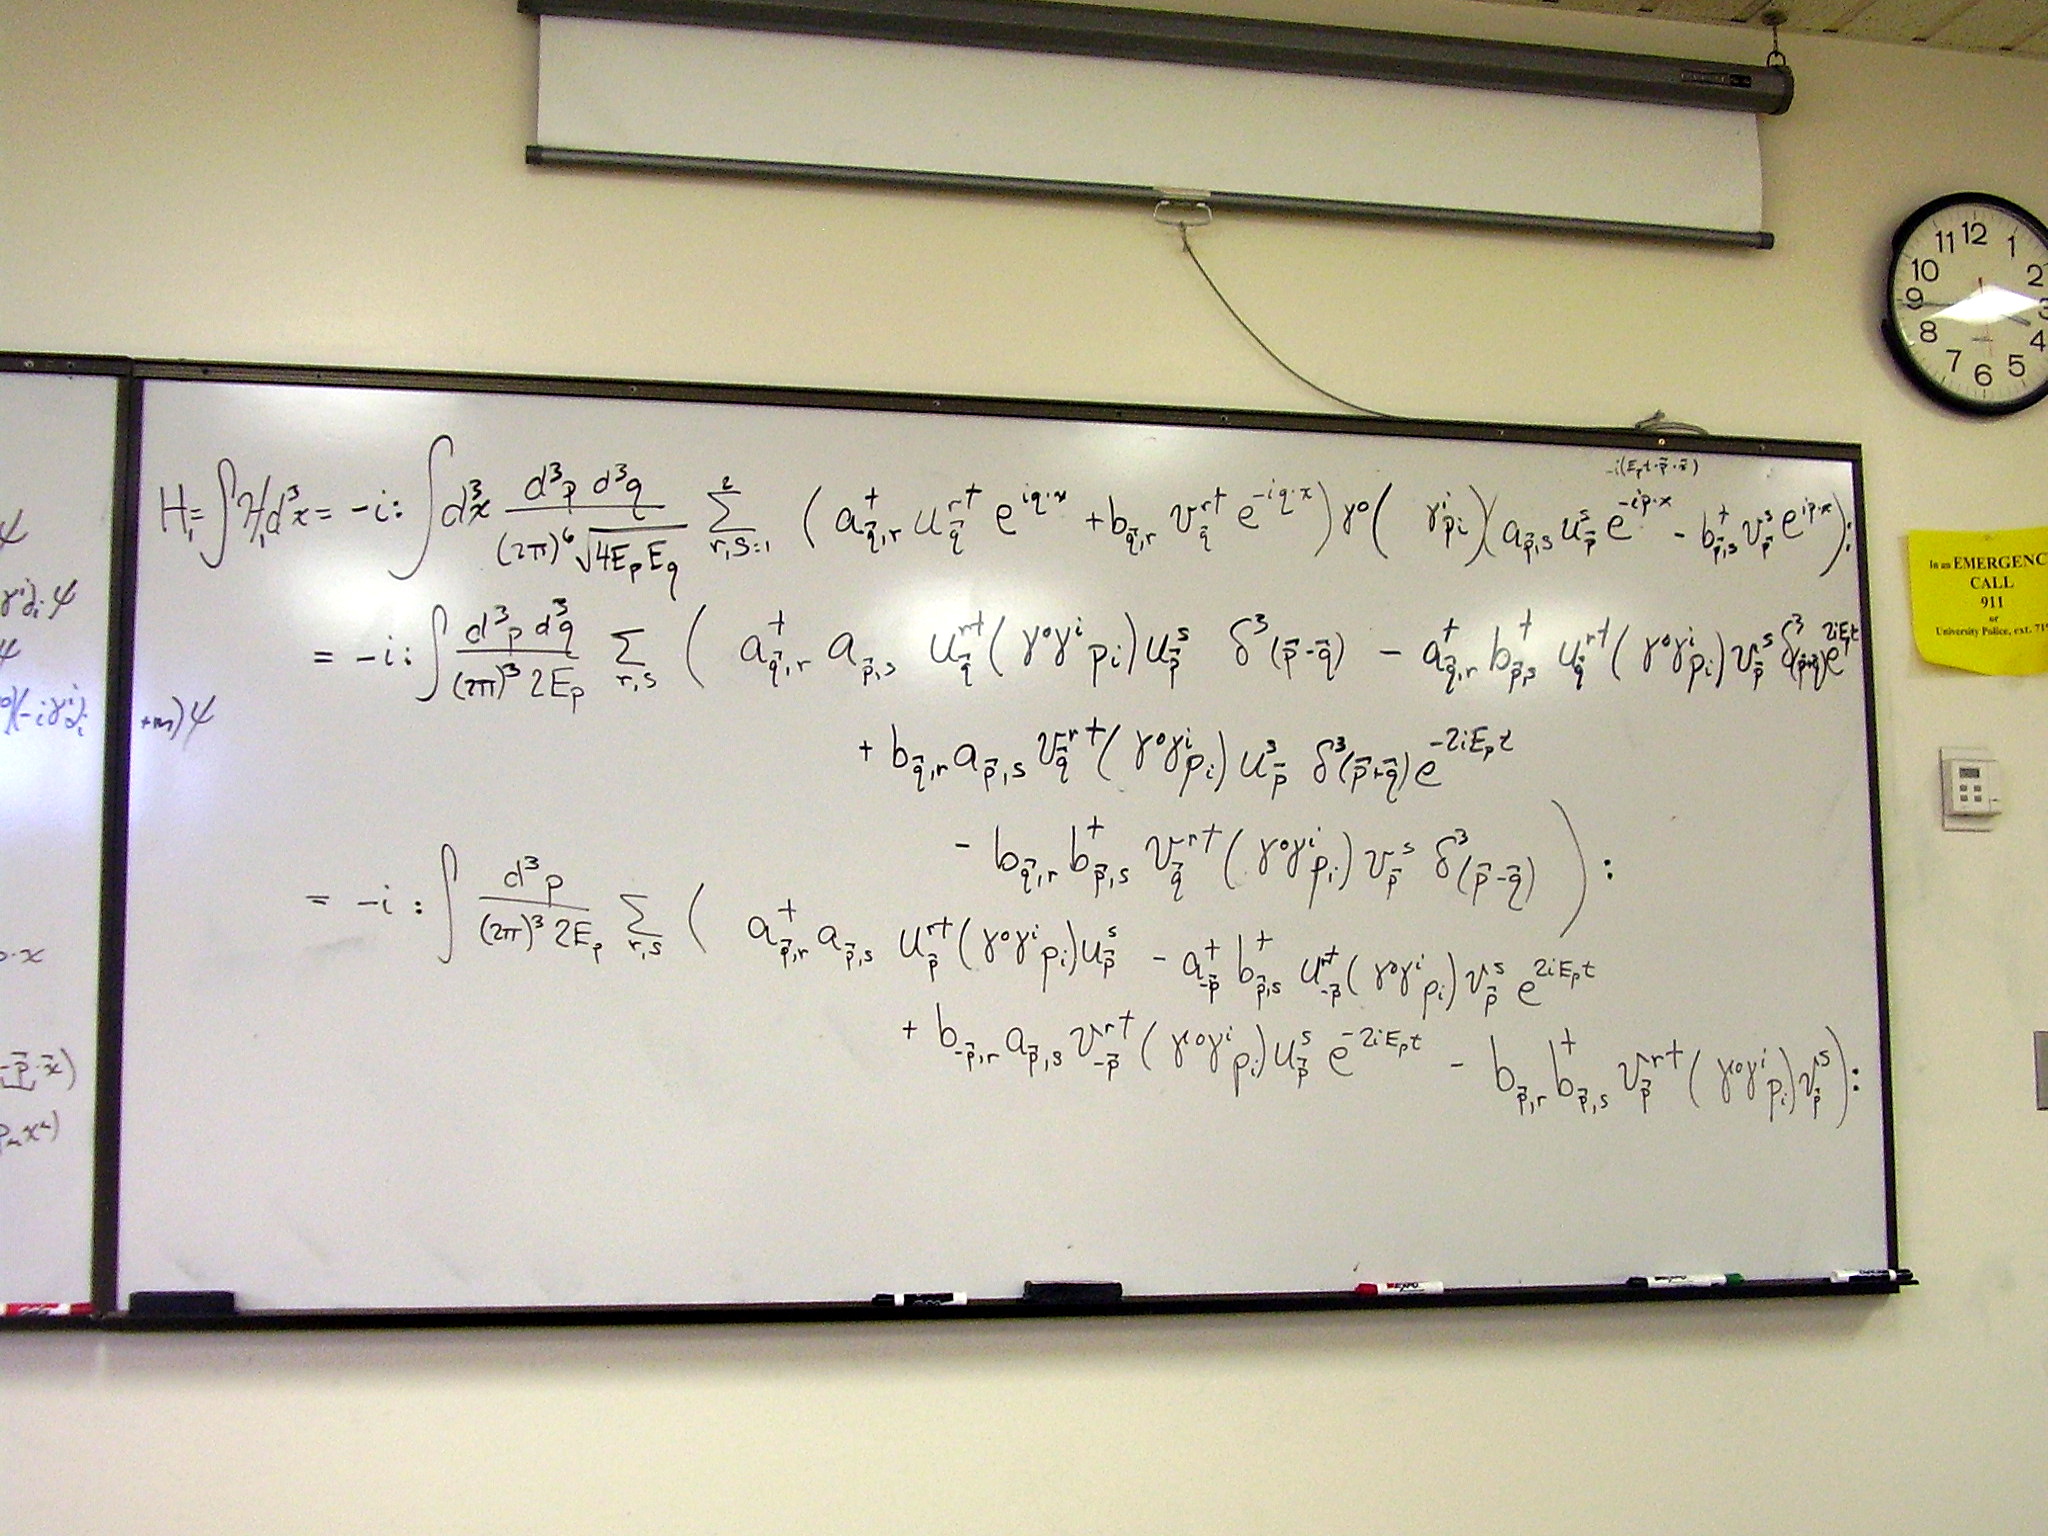 H₁ = ∫ℋ₁d³x = -i: ∫d³x d³p d³q / (2π)⁶√(4E_p E_q) Σ²_{r,s=1} ( a†_{q⃗,r} u^{r†}_{q⃗} e^{iq·x} + b_{q⃗,r} v^{r†}_{q⃗} e^{-iq·x} ) γ⁰( γⁱp_i )( a_{p⃗,s} u^s_{p⃗} e^{-ip·x} - b†_{p⃗,s} v^s_{p⃗} e^{ip·x} ):
-i(E_p t - p⃗·x⃗)
= -i: ∫ d³p d³q / (2π)³ 2E_p Σ_{r,s} ( a†_{q⃗,r} a_{p⃗,s} u^{r†}_{q⃗} ( γ⁰γⁱp_i ) u^s_{p⃗} δ³(p⃗-q⃗) - a†_{q⃗,r} b†_{p⃗,s} u^{r†}_{q⃗} ( γ⁰γⁱp_i ) v^s_{p⃗} δ³(p⃗+q⃗) e^{2iE_p t}
+ b_{q⃗,r} a_{p⃗,s} v^{r†}_{q⃗} ( γ⁰γⁱp_i ) u^s_{p⃗} δ³(p⃗+q⃗) e^{-2iE_p t}
- b_{q⃗,r} b†_{p⃗,s} v^{r†}_{q⃗} ( γ⁰γⁱp_i ) v^s_{p⃗} δ³(p⃗-q⃗) ):
= -i: ∫ d³p / (2π)³ 2E_p Σ_{r,s} ( a†_{p⃗,r} a_{p⃗,s} u^{r†}_{p⃗} ( γ⁰γⁱp_i ) u^s_{p⃗} - a†_{-p⃗} b†_{p⃗,s} u^{r†}_{-p⃗} ( γ⁰γⁱp_i ) v^s_{p⃗} e^{2iE_p t}
+ b_{-p⃗,r} a_{p⃗,s} v^{r†}_{-p⃗} ( γ⁰γⁱp_i ) u^s_{p⃗} e^{-2iE_p t} - b_{p⃗,r} b†_{p⃗,s} v^{r†}_{p⃗} ( γ⁰γⁱp_i ) v^s_{p⃗} ):
ψ
γⁱ∂_i ψ
ψ
(-iγⁱ∂_i +m)ψ
·x
-p⃗·x⃗)
12
1
2
3
4
5
6
7
8
9
10
11
In an EMERGENC
CALL
911
or
University Police, ext. 71
EXPO